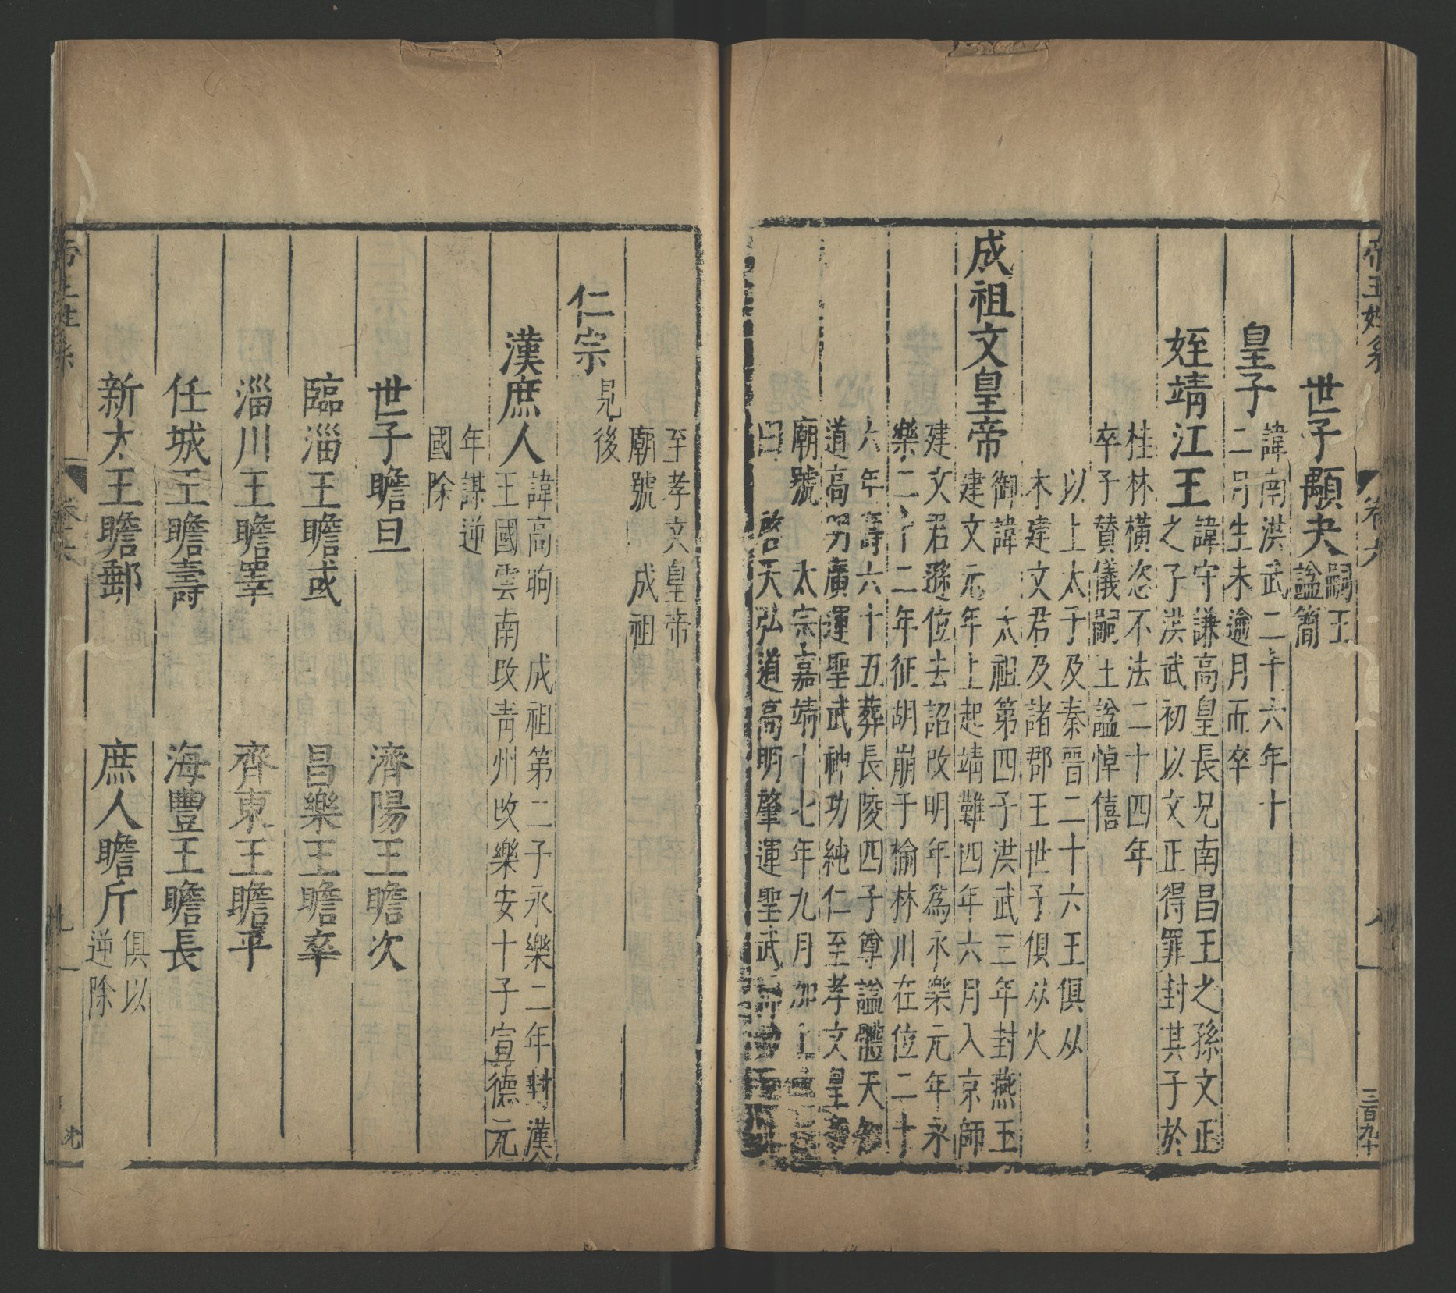 帝王姓系 卷六
世子顒夬 嗣王
諡簡
皇子 諱南洪武二十六年十
二月生未逾月而卒
姪靖江王 諱守謙高皇長兄南昌王之孫文正
之子洪武初以文正得罪封其子於
桂林橫恣不法二十四年
卒子贊儀嗣王諡悼僖
以上太子及秦晉二十六王俱从
木建文君及諸郡王世子俱从火
成祖文皇帝 御諱 太祖第四子洪武三年封燕王
建文元年上起靖難四年六月入京師
建文君遜位去詔改明年為永樂元年永
樂二十二年征胡崩于榆林川在位二十
六年壽六十五葬長陵四子尊諡體天
道高明廣運聖武神功純仁至孝文皇帝
廟號 太宗嘉靖十七年九月加上
曰 啓天弘道高明肇運聖武
至孝文皇帝
廟號 成祖
仁宗 見後
漢庶人 諱高昫 成祖第二子永樂二年封漢
王國雲南改青州改樂安十子宣德元
年謀逆
國除
世子瞻旦 濟陽王瞻次
臨淄王瞻或 昌樂王瞻
淄川王瞻 齊東王瞻平
任城王瞻壽 海豐王瞻長
新太王瞻郵 庶人瞻斤 俱以
逆除
帝王姓系